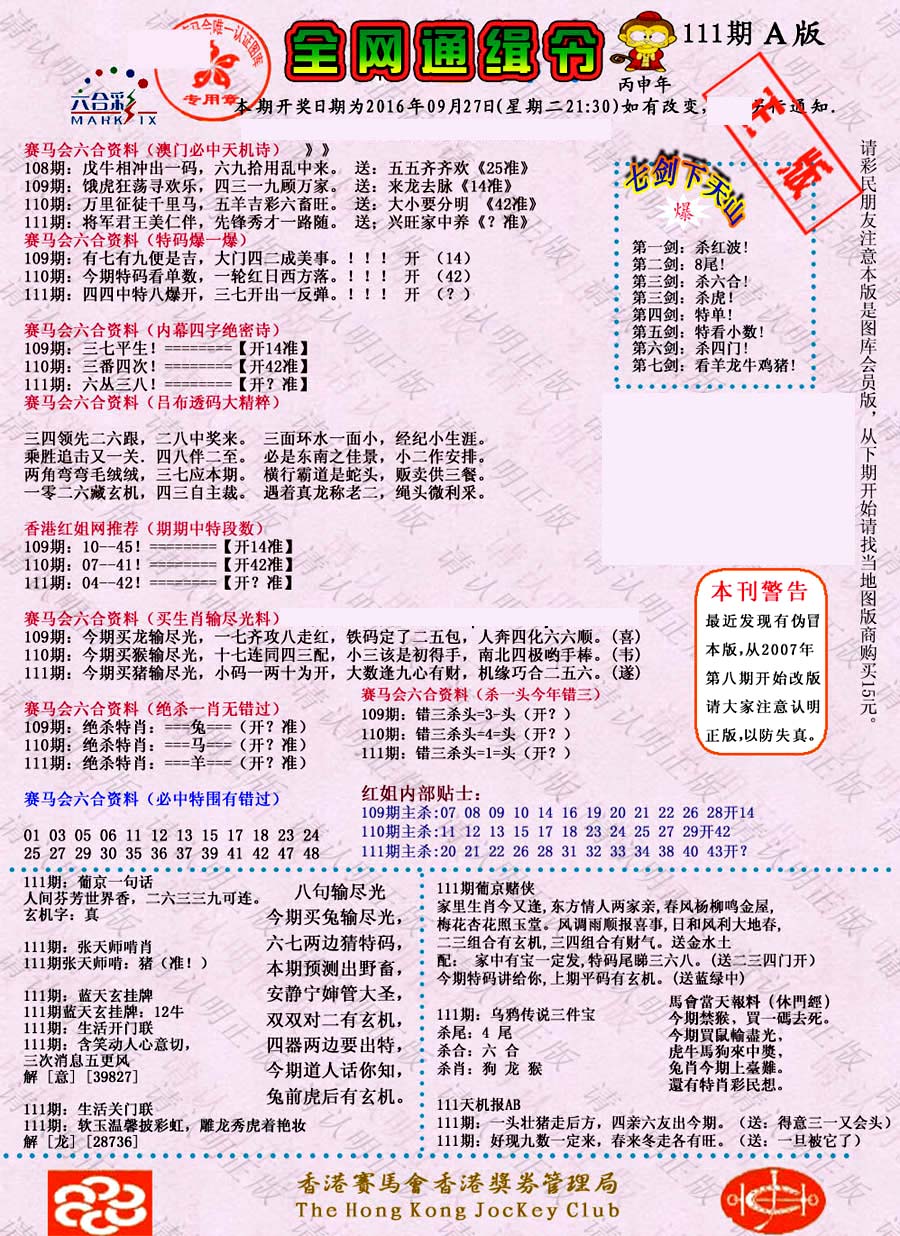 全网通缉令
111期 A 版
丙申年
专用章
六合彩
MARK SIX
本期开奖日期为2016年09月27日(星期二21:30)如有改变,
通知.
正版
请彩民朋友注意本版是图库会员版，从下期开始请找当地图版商购买15元。
赛马会六合资料（澳门必中天机诗） 》》
108期：戊牛相冲出一码，六九拾用乱中来。 送：五五齐齐欢《25准》
109期：饿虎狂荡寻欢乐，四三一九顾万家。 送：来龙去脉《14准》
110期：万里征徒千里马，五羊吉彩六畜旺。 送：大小要分明 《42准》
111期：将军君王美仁伴，先锋秀才一路随。 送；兴旺家中养《？准》
赛马会六合资料（特码爆一爆）
109期：有七有九便是吉，大门四二成美事。！！！ 开 （14）
110期：今期特码看单数，一轮红日西方落。！！！ 开 （42）
111期：四四中特八爆开，三七开出一反弹。！！！ 开 （？）
七剑下天山
爆
第一剑：杀红波!
第二剑：8尾!
第三剑：杀六合!
第三剑：杀虎!
第四剑：特单!
第五剑：特看小数!
第六剑：杀四门!
第七剑：看羊龙牛鸡猪!
赛马会六合资料（内幕四字绝密诗）
109期：三七平生！========【开14准】
110期：三番四次！========【开42准】
111期：六丛三八！========【开？准】
赛马会六合资料（吕布透码大精粹）
三四领先二六跟，二八中奖来。 三面环水一面小，经纪小生涯。
乘胜追击又一关．四八伴二至。 必是东南之佳景，小二作安排。
两角弯弯毛绒绒，三七应本期。 横行霸道是蛇头，贩卖供三餐。
一零二六藏玄机，四三自主裁。 遇着真龙称老二，绳头微利釆。
香港红姐网推荐（期期中特段数）
109期：10--45！========【开14准】
110期：07--41！========【开42准】
111期：04--42！========【开？准】
赛马会六合资料（买生肖输尽光料）
109期：今期买龙输尽光，一七齐攻八走红，铁码定了二五包，人奔四化六六顺。(喜)
110期：今期买猴输尽光，十七连同四三配，小三该是初得手，南北四极哟手棒。(韦)
111期：今期买猪输尽光，小码一两十为开，大数逢九心有财，机缘巧合二五六。(逐)
本刊警告
最近发现有伪冒
本版,从2007年
第八期开始改版
请大家注意认明
正版,以防失真。
赛马会六合资料（绝杀一肖无错过）
109期：绝杀特肖：===兔===（开？准）
110期：绝杀特肖：===马===（开？准）
111期：绝杀特肖：===羊===（开？准）
赛马会六合资料（杀一头今年错三）
109期：错三杀头=3-头（开？）
110期：错三杀头=4=头（开？）
111期：错三杀头=1=头（开？）
赛马会六合资料（必中特围有错过）
01 03 05 06 11 12 13 15 17 18 23 24
25 27 29 30 35 36 37 39 41 42 47 48
红姐内部贴士：
109期主杀:07 08 09 10 14 16 19 20 21 22 26 28开14
110期主杀:11 12 13 15 17 18 23 24 25 27 29开42
111期主杀:20 21 22 26 28 31 32 33 34 38 40 43开？
111期：葡京一句话
人间芬芳世界香，二六三三九可连。
玄机字：真
111期：张天师啃肖
111期张天师啃：猪（准！）
111期：蓝天玄挂牌
111期蓝天玄挂牌：12牛
111期：生活开门联
111期：含笑动人心意切，
三次消息五更风
解［意］[39827]
111期：生活关门联
111期：软玉温馨披彩虹，雕龙秀虎着艳妆
解［龙］[28736]
八句输尽光
今期买兔输尽光，
六七两边猜特码，
本期预测出野畜，
安静宁婶管大圣，
双双对二有玄机，
四器两边要出特，
今期道人话你知，
兔前虎后有玄机。
111期葡京赌侠
家里生肖今又逢,东方情人两家亲,春风杨柳鸣金屋,
梅花杏花照玉堂。风调雨顺报喜事,日和风利大地春,
二三组合有玄机,三四组合有财气。送金水土
配： 家中有宝一定发,特码尾睇三六八。(送二三四门开)
今期特码讲给你,上期平码有玄机。(送蓝绿中)
111期：乌鸦传说三件宝
杀尾：4 尾
杀合：六 合
杀肖：狗 龙 猴
馬會當天報料（休門經）
今期禁猴，買一碼去死。
今期買鼠輸盡光，
虎牛馬狗來中獎，
兔肖今期上臺難。
還有特肖彩民想。
111天机报AB
111期：一头壮猪走后方，四亲六友出今期。（送：得意三一又会头）
111期：好现九数一定来，春来冬走各有旺。（送：一旦被它了）
香港賽馬會香港獎券管理局
The Hong Kong JocKey Club